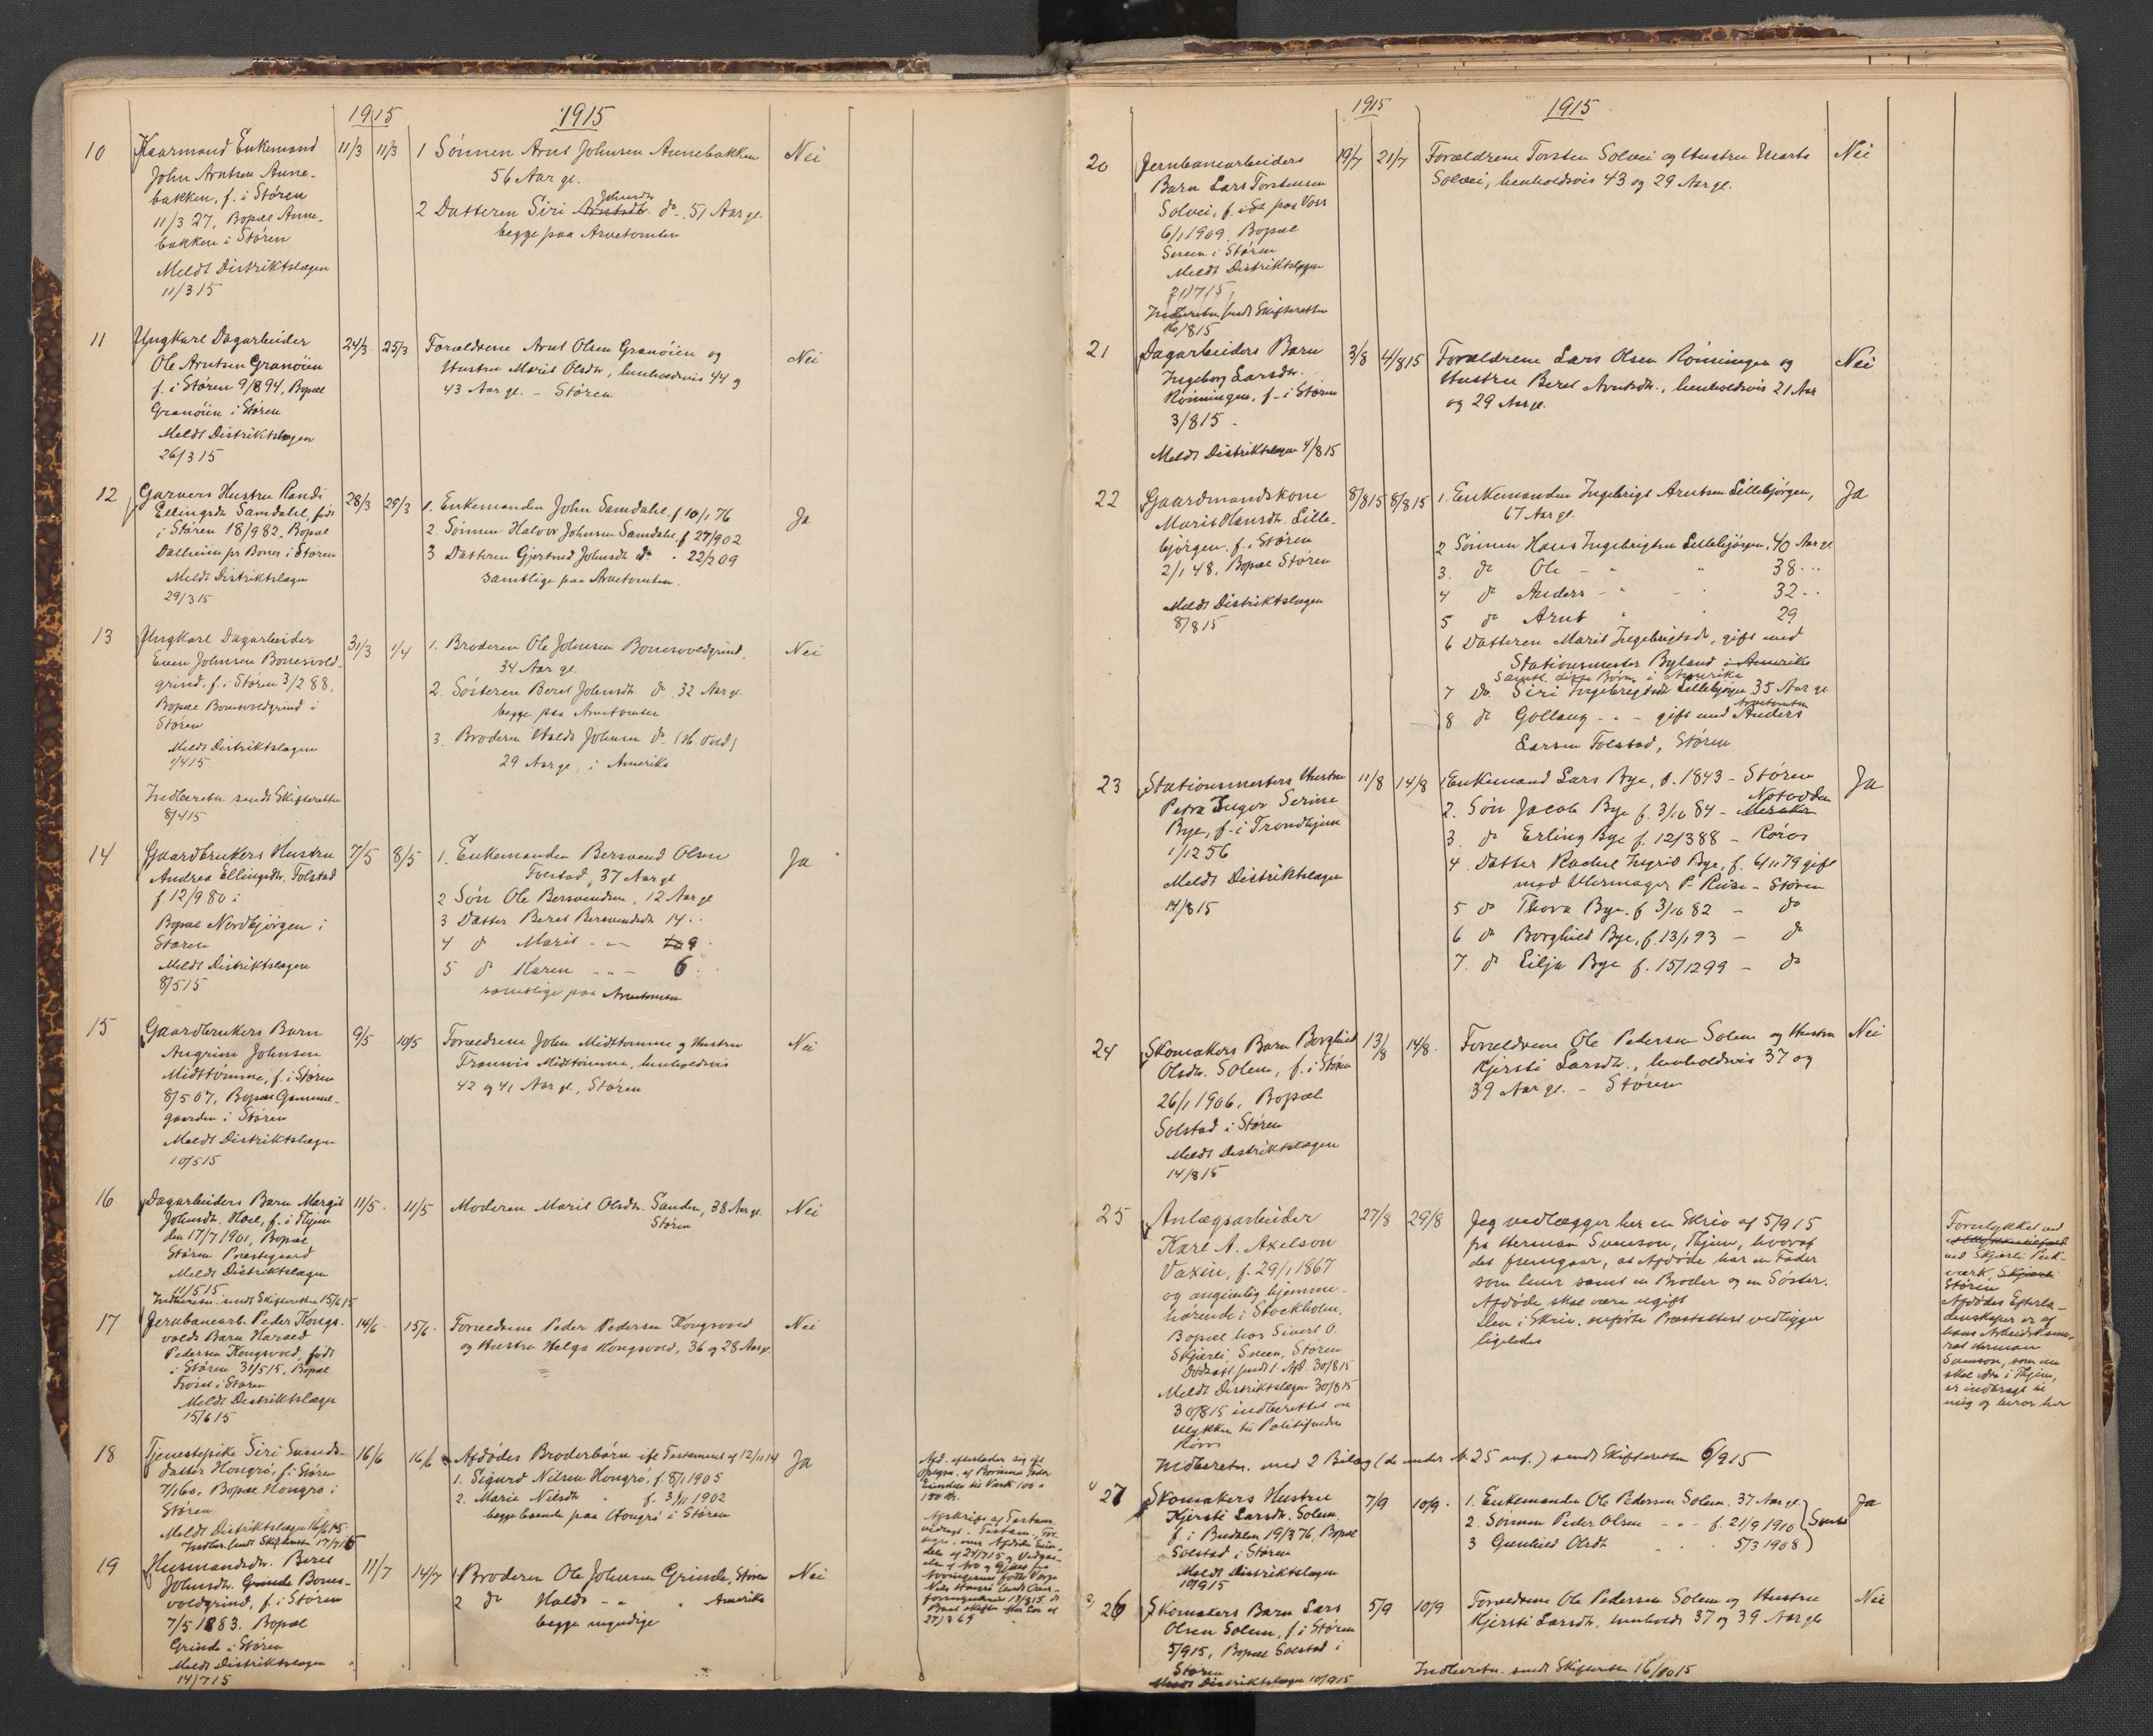 1915
1915
10
Kaarmand Enkemand
John Arntsen Anne-
bakken, f. i Støren
11/3 27, Bopæl Anne-
bakken i Støren
Meldt Distriktslægen
11/3 15
11/3
11/3
1 Sönnen Arnt Johnsen Annebakken
56 Aar gl.
Johnsdtr
2 Datteren Siri Arntsdtr. do. 51 Aar gl.
begge paa Arvetomten
Nei
11
Ungkarl Dagarbeider
Ole Arntsen Granöien
f. i Støren 9/8 94, Bopæl
Granöien i Støren
Meldt Distriktslægen
26/3 15
24/3
25/3
Forældrene Arnt Olsen Granöien og
Hustru Marit Olsdtr, henholdsvis 44 og
43 Aar gl. - Støren
Nei
12
Garvers Hustru Randi
Ellingsdtr Samdahl, født
i Støren 18/9 82, Bopæl
Dalheim pr Bones i Støren
Meldt Distriktslægen
29/3 15
28/3
29/3
1. Enkemanden John Samdahl, f 10/1 76
2. Sönnen Halvor Johnsen Samdahl, f 27/9 02
3 Datteren Gjertrud Johnsdtr do " 22/2 09
samtlige paa Arvetomten.
Ja
13
Ungkarl Dagarbeider
Even Johnsen Bonesvold-
grind, f. i Støren 3/2 88,
Bopæl Bonesvoldgrind i
Støren
Meldt Distriktslægen
1/4 15
Indberetn. sendt Skifteretten
8/4 15
31/3
1/4
1. Broderen Ole Johnsen Bonesvoldgrind,
34 Aar gl.
2. Sösteren Beret Johnsdtr do. 32 Aar gl.
begge paa Arvetomten
3. Broderen Haldo Johnsen do.
29 Aar gl., i Amerika
Nei
14
Gaardbrukers Hustru
Andrea Ellingsdtr. Folstad
f 12/9 80 i
Bopæl Nordbjörgen i
Støren
Meldt Distriktslægen
8/5 15
7/5
8/5
1. Enkemanden Bersvend Olsen
Folstad, 37 Aar gl
2 Sön Ole Bersvendsen, 12 Aar gl
3 Datter Beret Bersvendsdtr 14 . .
4 do Marit - " - 9
5 do Karen - " - 6
samtlige paa Arvetomten
Ja
15
Gaardbrukers Barn
Angrim Johnsen
Midttömme, f. i Støren
8/5 07, Bopæl Gammel-
gaarden i Støren
Meldt Distriktslægen
10/5 15
9/5
10/5
Forældrene John Midttömme og Hustru
Midttömme, henholdsvis
42 og 41 Aar gl., Støren
Nei
16
Dagarbeiders Barn Margit
Johnsdtr. Hoel, f. i Thjem
den 17/7 1901, Bopæl
Støren Præstegaard
Meldt Distriktslægen
11/5 15
Indberetn. sendt Skifteretten 15/6 15
11/5
11/5
Moderen Marit Olsdtr. Sanden, 38 Aar gl.
Støren
Nei
17
Jernbanearb. Peder Kongs-
volds Barn Harald
Pedersen Kongsvold, født
i Støren 31/5 15, Bopæl
Fröset i Støren
Meldt Distriktslægen
15/6 15
14/6
15/6
Forældrene Peder Pedersen Kongsvold
og Hustru Helga Kongsvold, 36 og 28 Aar gl.
Nei
18
Tjenestepike Siri Svends-
datter Hongrö, f. i Støren
7/1 60, Bopæl Hongrö i
Støren
Meldt Distriktslægen 16/6 15
Indber. sendt Skifteretten 17/7 15
16/6
16/6
Afdödes Broderbörn ifl. Testament af 12/11 14
1. Sigurd Nilsen Hongrö, f 8/1 1905
2. Marie Nilsdtr " f. 3/11 1902
begge boende paa Hongrö i Støren
Ja
Afd. efterlader sig ifl
Opegn. af Börnenes Fader
Eiendele til Værdi 100 a
150 Kr.
27/3 69
19
Husmandsdtr. Beret
Johnsdtr. Grinde Bones-
voldgrind, f. i Støren
7/5 1883. Bopæl
Grinde i Støren
Meldt Distriktslægen
14/7 15
11/7
14/7
1 Broderen Ole Johnsen Grinde, Støren
2 do Haldo - " " Amerika
begge myndige
Nei
1915
1915
20
Jernbanearbeiders
Barn Lars Torstensen
Solvei, f. paa Voss
6/1 1909. Bopæl
Snoen i Støren
Meldt Distriktslægen
21/7 15
Indberetn sendt Skifteretten
16/8 15
19/7
21/7
Forældrene Torsten Solvei og Hustru Marta
Solvei, henholdsvis 43 og 29 Aar gl.
Nei
21
Dagarbeiders Barn
Ingeborg Larsdtr.
Rönningen, f. i Støren
3/8 15 -
Meldt Distriktslægen 4/8 15
3/8
4/8 15
Forældrene Lars Olsen Rönningen og
Hustru Beret Arntsdtr., henholdsvis 21 Aar
og 29 Aar gl.
Nei
22
Gaardmandskone
Marit Hansdtr. Lille-
björgen, f. i Støren
2/1 48, Bopæl Støren
Meldt Distriktslægen
8/8 15
8/8 15
8/8 15
1. Enkemanden Ingebrigt Arntsen Lillebjörgen,
67 Aar gl.
2 Sönnen Hans Ingebrigtsen Lillebjörgen, 40 Aar gl.
3. do Ole - " " 38 - - -
4 do Anders - " - " 32 - -
5 do Arnt " " 29
6 Datteren Marit Ingebrigtsdtr, gift med
Stationsmester Byland i Amerika
Samtl. disse Börn i Amerika
7 Do. Siri Ingebrigtsdtr Lillebjörgen 35 Aar gl
Arvetomten
8 do Gollaug - " - gift med Anders
Larsen Folstad, Støren
Ja
23
Stationsmesters Hustru
Petra Inger Serine
Bye, f. i Trondhjem
1/12 56
Meldt Distriktslægen
14/8 15
11/8
14/8
1. Enkemand Lars Bye, f. 1843 - Støren
Notodden
2. Sön Jacob Bye f. 3/10 84 - Meraker
3. do Erling Bye f. 12/3 88 - Röros
4. Datter Rachel Ingrid Bye, f. 6/11 79 gift
med Uhrmager P. - Støren
5 do Thora Bye. f 3/10 82 - do
6 do Borghild Bye, f. 13/1 93 - do
7. do Lilja Bye f. 15/12 99 - do
Ja
24
Skomakers Barn Borghild
Olsdtr. Solem, f. i Støren
26/1 1906, Bopæl
Solstad i Støren
Meldt Distriktslægen
14/8 15
13/8
14/8.
Forældrene Ole Pedersen Solem og Hustru
Kjersti Larsdtr., henholdsvis 37 og
39 Aar gl. - Støren
Nei
25
Anlægsarbeider
Karl A. Axelson
Vaxin, f. 29/1 1867
og angivelig hjemme-
hörende i Stockholm,
Bopæl hos Sivert O.
Skjærli, Snoen, Støren
Dödsatt. sendt 30/8 15
Meldt Distriktslægen 30/8 15
30/8 15 indberettet om
Ulykken til Politimesteren
Röros
27/8
29/8
Jeg vedlægger her en Skriv af 5/9 15
fra Herman Svenson, Thjem, hvoraf
det fremgaar, at Afdöde har en Fader
som lever samt en Broder og en Söster.
Afdöde skal være ugift
Den i Skriv. anförte Præsteattest vedligger
ligeledes
Forulykket ved
ved Skjærli Puk-
værk, Skjærli
Støren
Afdödes Efterla-
denskaper er af
hans Arbeidskame-
rat Herman
Svenson, som nu
skal være i Thjem,
er indbragt til
mig og beror her
Indberetn. med 2 Bilag (de under № 25 anf.) sendt Skifteretten 6/9 15
27
Skomakers Hustru
Kjersti Larsdtr. Solem,
f. i Budalen 19/3 76, Bopæl
Solstad i Støren
Meldt Distriktslægen
10/9 15
7/9
10/9.
1. Enkemanden Ole Pedersen Solem, 37 Aar gl.
2. Sönnen Peder Olsen - " - f. 21/9 1910
3 Gunhild Olsdtr " . . 5/3 1908
Ja
26
Skomakers Barn Lars
Olsen Solem, f. i Støren
5/9 15, Bopæl Solstad i
Støren
Meldt Distriktslægen 10/9 15
5/9
10/9
Forældrene Ole Pedersen Solem og Hustru
Kjersti Larsdtr, henholds 37 og 39 Aar gl.
Nei
Indberetn. sendt Skifteretten 16/10 15